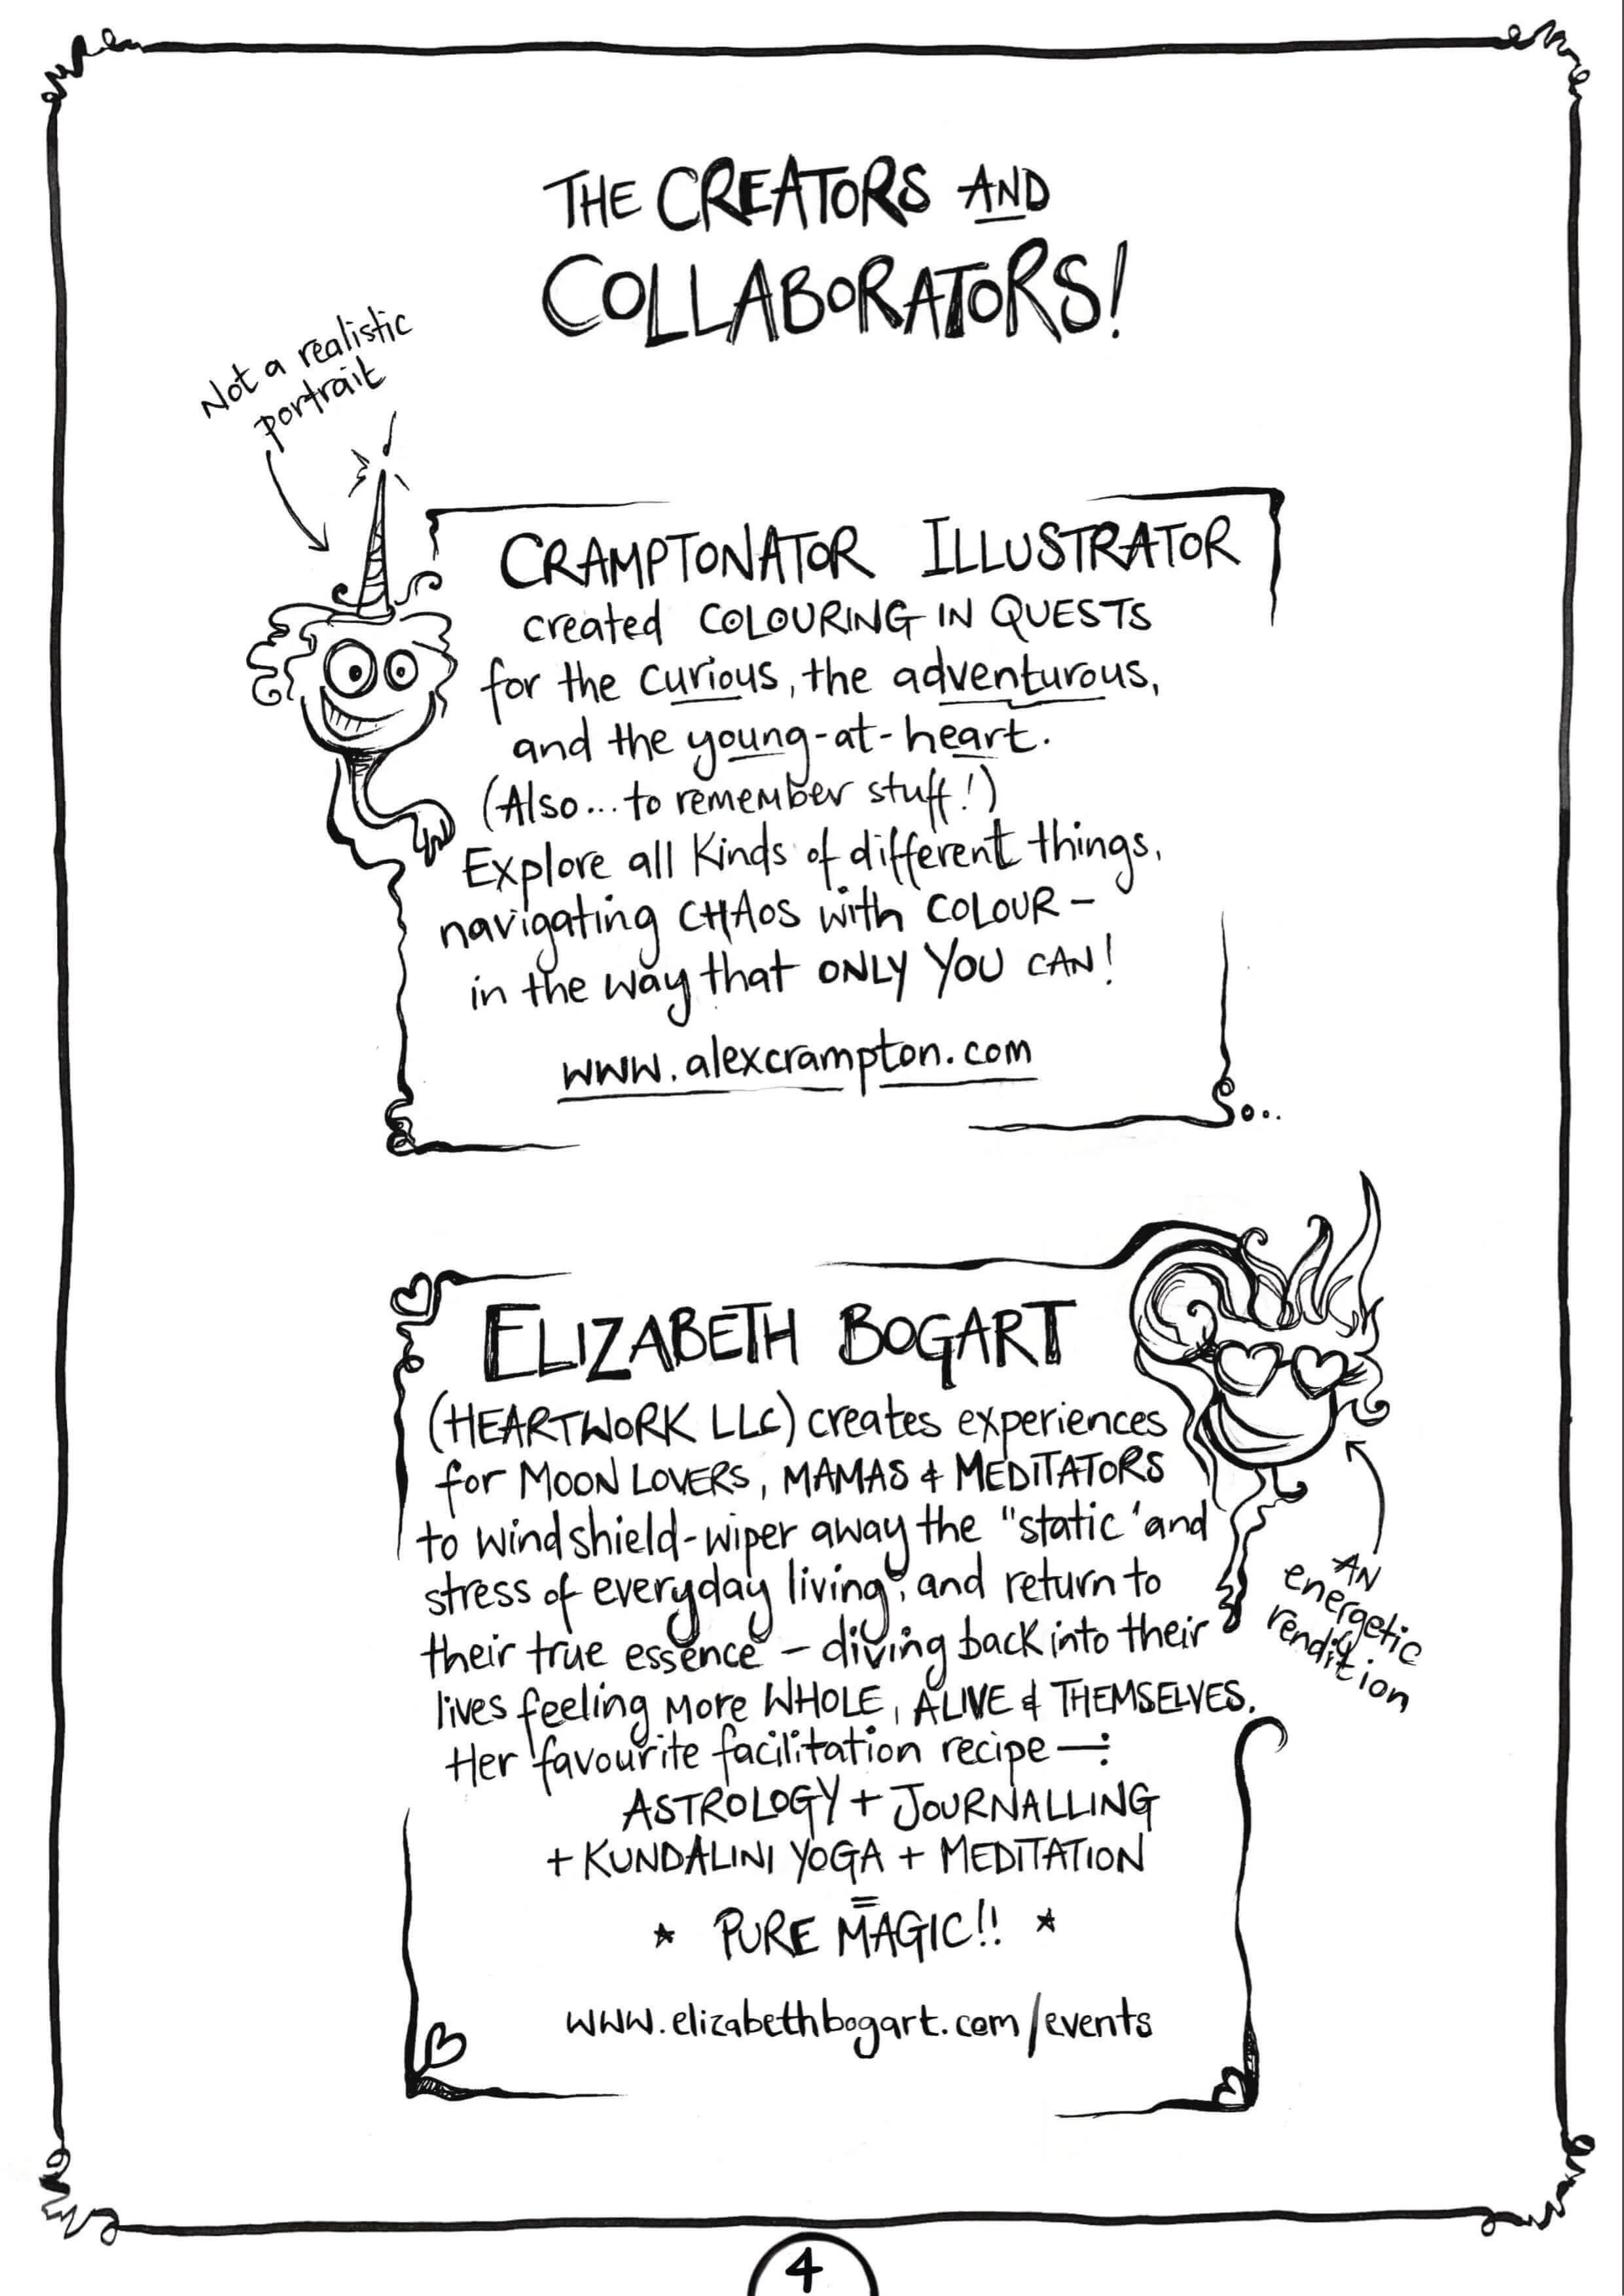 THE CREATORS AND
COLLABORATORS!
Not a realistic
portrait
CRAMPTONATOR ILLUSTRATOR
created COLOURING IN QUESTS
for the curious, the adventurous,
and the young-at-heart.
(Also... to remember stuff!)
Explore all kinds of different things,
navigating CHAOS with COLOUR -
in the way that ONLY YOU CAN!
www.alexcrampton.com
So...
ELIZABETH BOGART
(HEARTWORK LLC) creates experiences
for MOON LOVERS, MAMAS & MEDITATORS
to windshield-wiper away the "static" and
stress of everyday living, and return to
their true essence - diving back into their
lives feeling more WHOLE, ALIVE & THEMSELVES.
Her favourite facilitation recipe —:
ASTROLOGY + JOURNALLING
+ KUNDALINI YOGA + MEDITATION
=
* PURE MAGIC!! *
www.elizabethbogart.com/events
AN
energetic
rendition
4